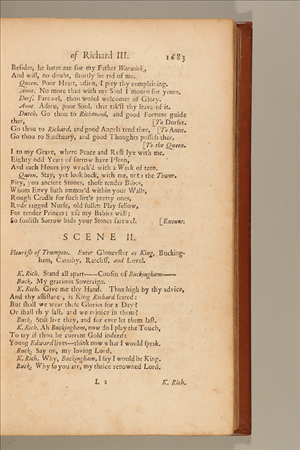 of Richard III. 1683
Besides, he hates me for my Father Warwick,
And will, no doubt, shortly be rid of me.
Queen. Poor Heart, adieu, I pity thy complaining.
Anne. No more than with my Soul I mourn for yours.
Dors. Farewel, thou woful welcomer of Glory.
Anne. Adieu, poor Soul, that tak'st thy leave of it.
Dutch. Go thou to Richmond, and good Fortune guide
thee, [To Dorset.
Go thou to Richard, and good Angels tend thee, [To Anne.
Go thou to Sanctuary, and good Thoughts possess thee.
[To the Queen.
I to my Grave, where Peace and Rest lye with me.
Eighty odd Years of sorrow have I seen,
And each Hours joy wrack'd with a Week of teen.
Queen. Stay, yet look back, with me, unto the Tower.
Pity, you ancient Stones, those tender Babes,
Whom Envy hath immur'd within your Walls,
Rough Cradle for such little pretty ones,
Rude ragged Nurse, old sullen Play fellow,
For tender Princes; use my Babies well;
So foolish Sorrow bids your Stones farewel. [Exeunt.
SCENE II.
Flourish of Trumpets. Enter Gloucester as King, Bucking-
ham, Catesby, Ratcliff, and Lovel.
K. Rich. Stand all apart——Cousin of Buckingham——
Buck. My gracious Sovereign.
K. Rich. Give me thy Hand. Thus high by thy advice,
And thy assistance, is King Richard seated:
But shall we wear these Glories for a Day?
Or shall they last, and we rejoice in them?
Buck. Still live they, and for ever let them last.
K. Rich. Ah Buckingham, now do I play the Touch,
To try if thou be current Gold indeed:
Young Edward lives—think now what I would speak.
Buck. Say on, my loving Lord.
K. Rich. Why, Buckingham, I say I would be King.
Buck. Why so you are, my thrice renowned Lord.
L 2 K. Rich.